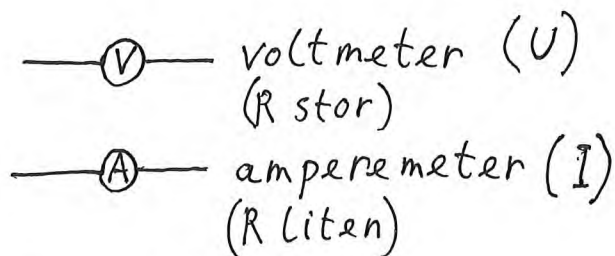 V voltmeter (U)
(R stor)
A amperemeter (I)
(R liten)